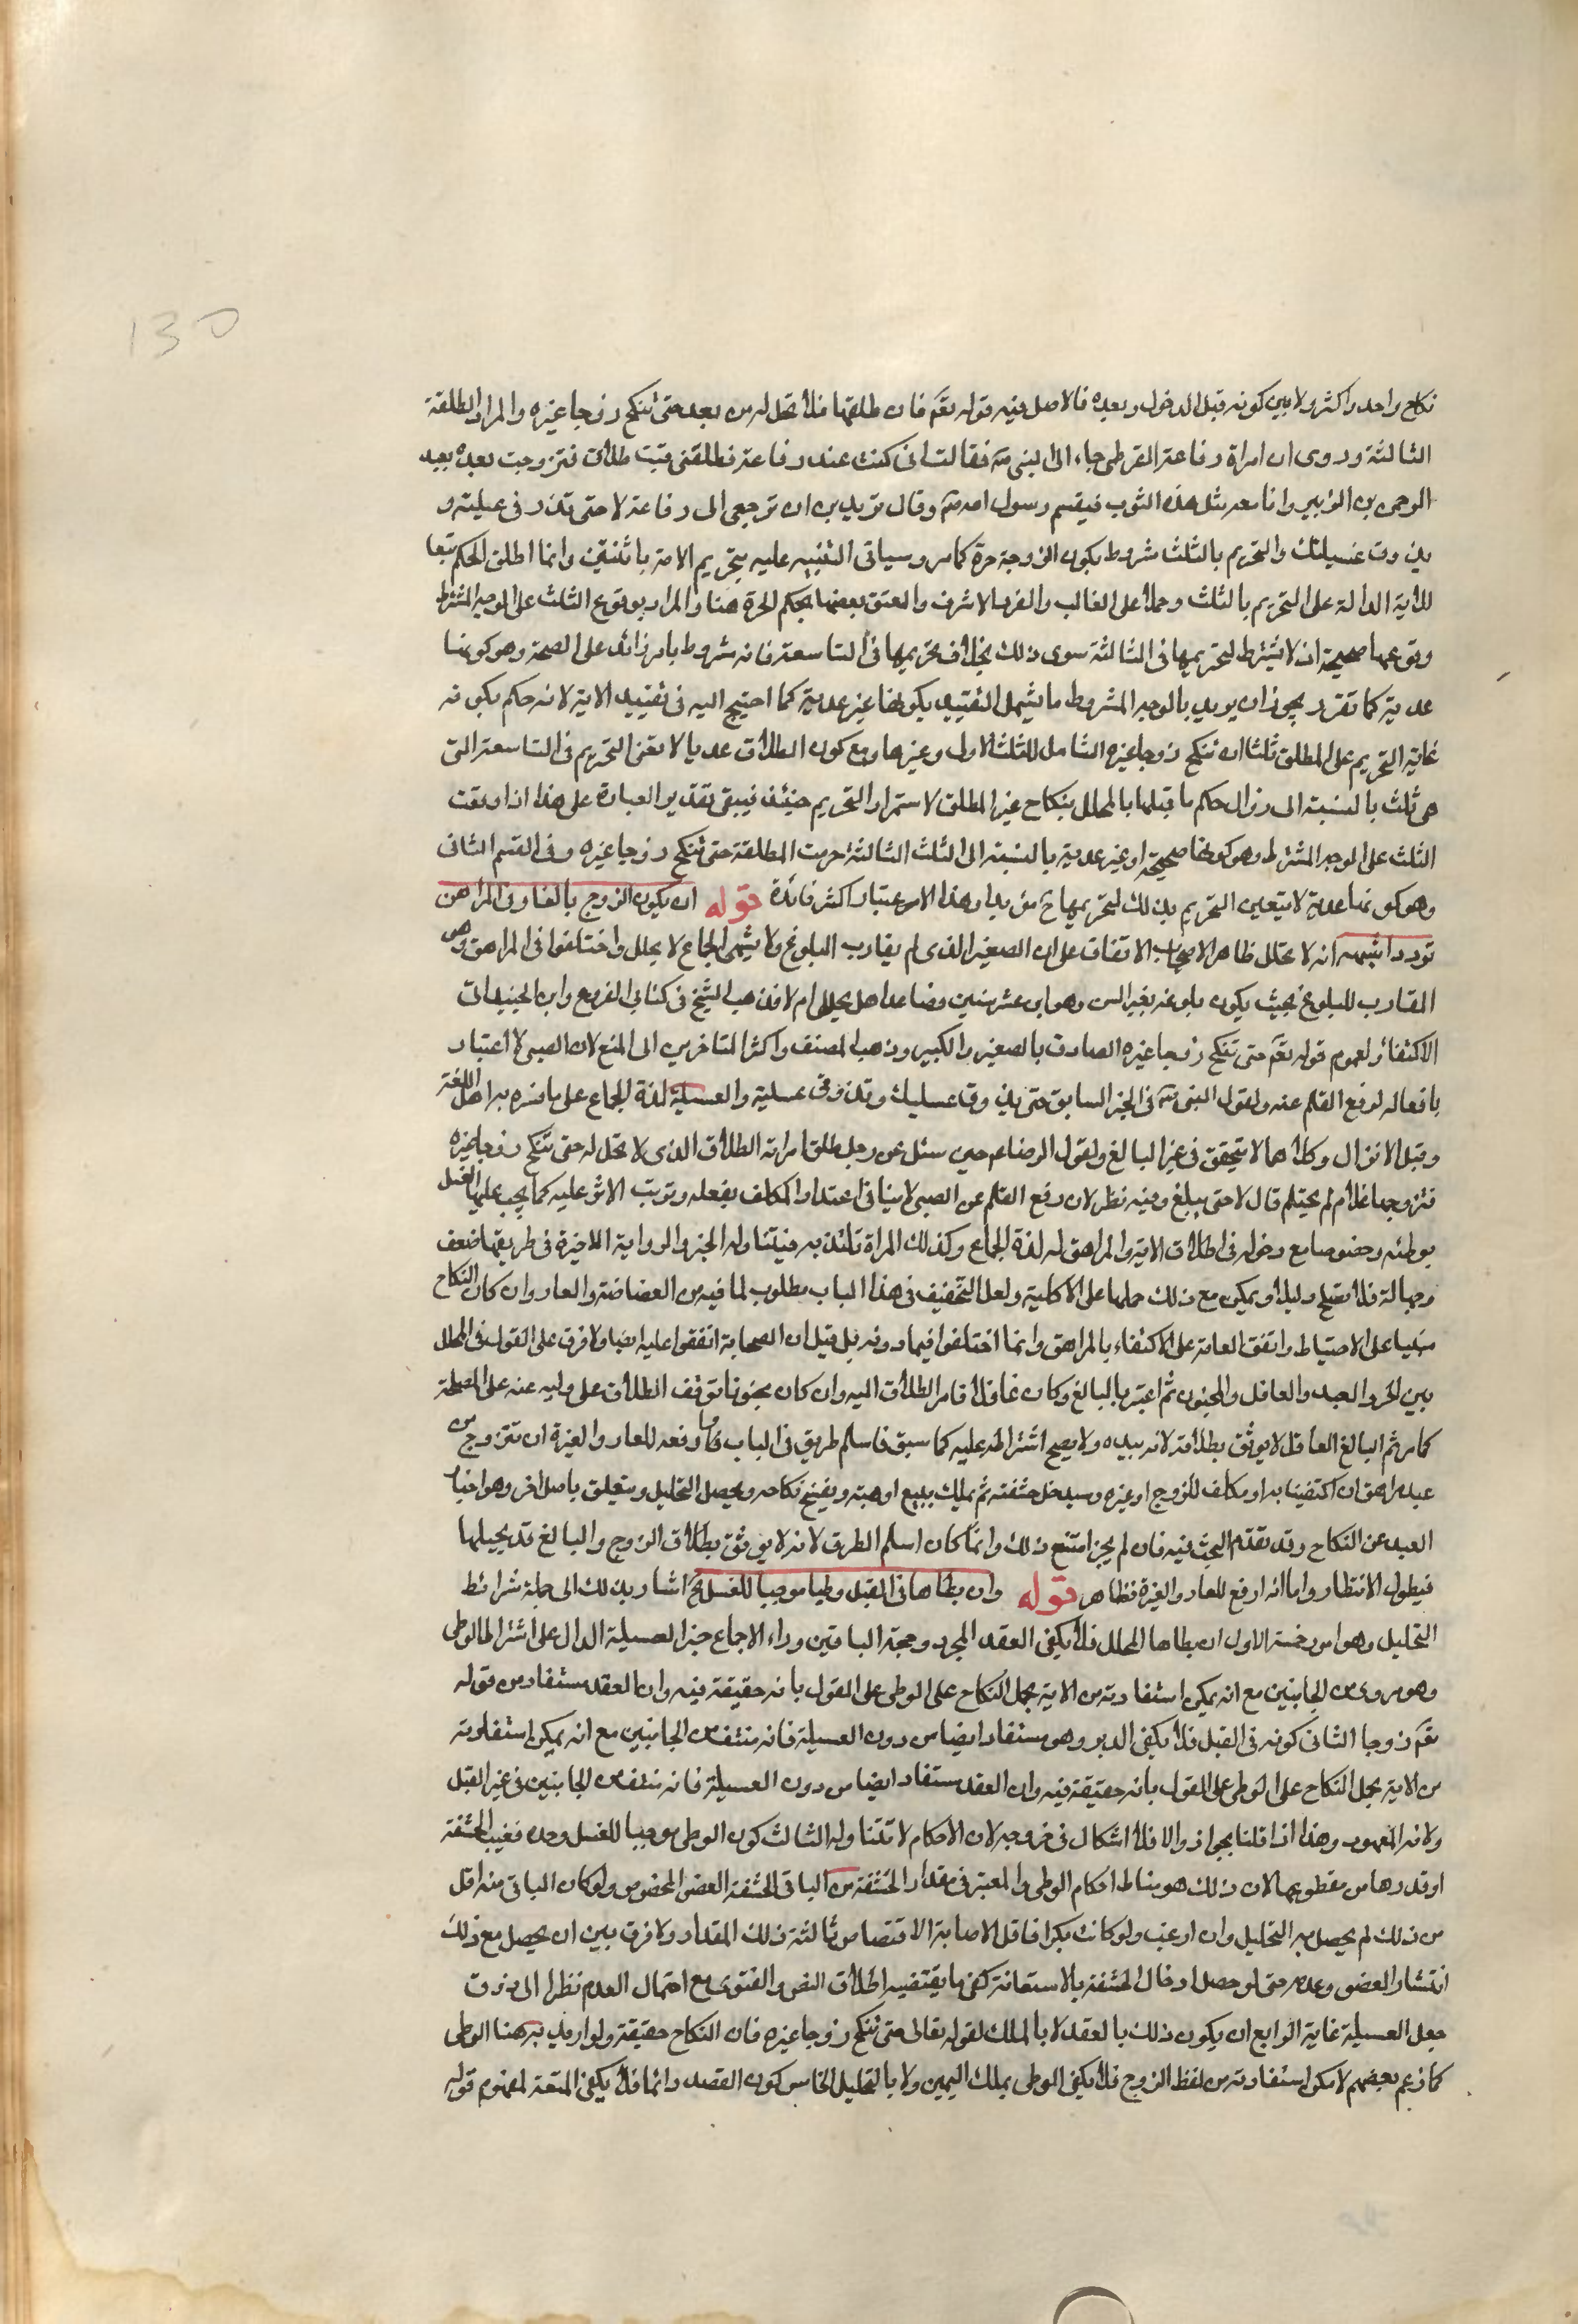 130
نكاح واحد واكثر ولا بين كونه قبل الدخول وبعده فالاصل فيه قوله تعم فان طلقها فلا تحل له من بعد حتى تنكح زوجا غيره والمراد الطلقة
الثالثة وروى ان امراة رفاعة القرظى جاء الى النبى صم فقالت انى كنت عند رفاعة فطلقنى فبت طلاقى فتزوجت بعده بعبد
الرحمن بن الزبير وانما معه مثل هذه الثوب فتبسم رسول الله صم وقال تريدين ان ترجعى الى رفاعة لا حتى تذوقى عسيلته و
يذوق عسيلتك والتحريم بالثلث مشروط بكون الزوجة حرة كما مر وسياتى التنبيه عليه بتحريم الامة باثنتين وانما اطلق الحكم تبعا
للاية الدالة على التحريم بالثلث وحملا على الغالب والفرد الاشرف والعتق بعضها بحكم الحرة هنا والمراد بوقوع الثلث على الوجه المشترط
وقوعها صحيحة اذ لا يشترط لتحريمها فى الثالثة سوى ذلك بخلاف تحريمها فى التاسعة فانه مشروط بامر زائد على الصحة وهو كونها
عدية كما تقرر ويجوز ان يريد بالوجه المشروط ما يشمل التقييد بكونها غير عدية كما احتيج اليه فى تقييد الاية لانه حكم بكون
غاية التحريم على المطلق ثلثا ان تنكح زوجا غيره الشامل للثلث الاول وغيرها ومع كون الطلاق عديا لا يعنى التحريم فى التاسعة التى
هى ثلث بالنسبة الى زوال حكم ما قبلها بالمحلل بنكاح غير المطلق لاستمرار التحريم حينئذ فيبقى تقدير العبارة على هذا اذا وقعت
الثلث على الوجه المشترط وهو كونها صحيحة او غير عدية بالنسبة الى الثلث الثالثة حرمت المطلقة حتى تنكح زوجا غيره وفى القسم الثانى
وهو كونها عدية لا يتعين التحريم بذلك لتحريمها ح مؤبدا وهذا الاعتبار اكثر فائدة قوله ان يكون الزوج بالغا وفى المراهق
تردد اشبهه انه لا يحلل ظاهر الاصحاب الاتفاق على ان الصغير الذى لم يقارب البلوغ ولا يشتهى الجماع لا يحلل واختلفوا فى المراهق وهو
المقارب للبلوغ بحيث يكون بلوغه بغير السن وهو ابن عشر سنين فصاعدا هل يحلل ام لا فذهب الشيخ فى كتابى الفروع وابن الجنيد الى
الاكتفاء لعموم قوله تعم حتى تنكح زوجا غيره الصادق بالصغير والكبير وذهب المصنف واكثر المتاخرين الى المنع لان الصبى لا اعتبار
بافعاله لرفع القلم عنه ولقول النبى صم فى الخبر السابق حتى يذوق عسيلتك وتذوقى عسيلته والعسيلة لذة الجماع على ما فسره به اهل اللغة
وقيل الانزال وكلاهما لا يتحقق فى غير البالغ ولقول الرضا عم حين سئل عن رجل طلق امراته الطلاق الذى لا تحل له حتى تنكح زوجا غيره
فتزوجها غلام لم يحتلم قال لا حتى يبلغ وفيه نظر لان رفع القلم عن الصبى لا ينافى اعتداد المكلف بفعله وترتب الاثر عليه كما يجب عليها الغسل
بوطئه وخصوصا مع دخوله فى اطلاق الاية والمراهق له لذة الجماع وكذلك المراة تلتذ به فيتناوله الخبر والرواية الاخيرة فى طريقها ضعف
وجهالة فلا يصلح دليلا ويمكن مع ذلك حملها على الاكملية ولعل التخفيف فى هذا الباب مطلوب لما فيه من الغضاضة والعار وان كان النكاح
مبنيا على الاحتياط واتفق العامة على الاكتفاء بالمراهق وانما اختلفوا فيما دونه بل قيل ان الصحابة اتفقوا عليه ايضا ولا فرق على القول فى المحلل
بين الحر والعبد والعاقل والمجنون ثم اعتبر بالبالغ وكان عاقلا فامر الطلاق اليه وان كان مجنونا توقف الطلاق على وليه عنه على المصلحة
كما مر ثم البالغ العاقل لا يوثق بطلاقه لانه بيده ولا يصح اشتراطه عليه كما سبق فاسلم طريق فى الباب وادفعه للعار والغيرة ان تتزوج من
عبد مراهق ان اكتفينا به او مكلف للزوج او غيره وسيدخل حشفته ثم يملك ببيع او هبة وينفسخ نكاحه ويحصل التحليل ويتعلق باصل اخر وهو اجبار
العبد عن النكاح وقد تقدم البحث فيه فان لم يجز امتنع ذلك وانما كان اسلم الطرق لانه لا يوثق بطلاق الزوج والبالغ قد يحبلها
فيطول الانتظار واما انه ارفع للعار والغيرة فظاهر قوله وان يطاها فى القبل وطيا موجبا للغسل الخ اشار بذلك الى جملة شرائط
التحليل وهو امور خمسة الاول ان يطاها المحلل فلا يكفى العقد المجرد وحجة الباقين وراء الاجماع خبر العسيلة الدال على اشتراط الوطى
وهو مروى من الجانبين مع انه يمكن استفادته من الاية بحمل النكاح على الوطى على القول بانه حقيقة فيه وان العقد مستفاد من قوله
تعم زوجا الثانى كونه فى القبل فلا يكفى الدبر وهو مستفاد ايضا من دون العسيلة فانه منتف من الجانبين مع انه يمكن استفادته
من الاية بحمل النكاح على الوطى على القول بانه حقيقة فيه وان العقد مستفاد ايضا من دون العسيلة فانه منتف من الجانبين فى غير القبل
ولانه المعهود وهذا اذا قلنا بجوازه والا فلا اشكال فى خروجه لان الاحكام لا تتناوله الثالث كون الوطى موجبا للغسل وحده فغيب الحشفة
او قدرها من مقطوعها لان ذلك هو مناط احكام الوطى والمعتبر فى مقدار الحشفة من الباقى الحشفة العضو المخصوص ولو كان الباقى منه اقل
من ذلك لم يحصل به التحليل وان اوعب ولو كانت بكرا فاقل الاصابة الاقتضاض ثالثة ذلك المقدار ولا فرق بين ان يحصل مع ذلك
انتشار العضو وعدمه حتى لو حصل ادخال الحشفة بالاستعانة كفى ما يقتضيه اطلاق النص والفتوى مع احتمال العدم نظرا الى ذوق
جعل العسيلة غاية الرابع ان يكون ذلك بالعقد لا بالملك لقوله تعالى حتى تنكح زوجا غيره فان النكاح حقيقة ولو اريد به هنا الوطى
كما زعم بعضهم لامكن استفادته من لفظ الزوج فلا يكفى الوطى بملك اليمين ولا بالتحليل الخامس كون العقد دائما فلا يكفى المتعة لمفهوم قوله